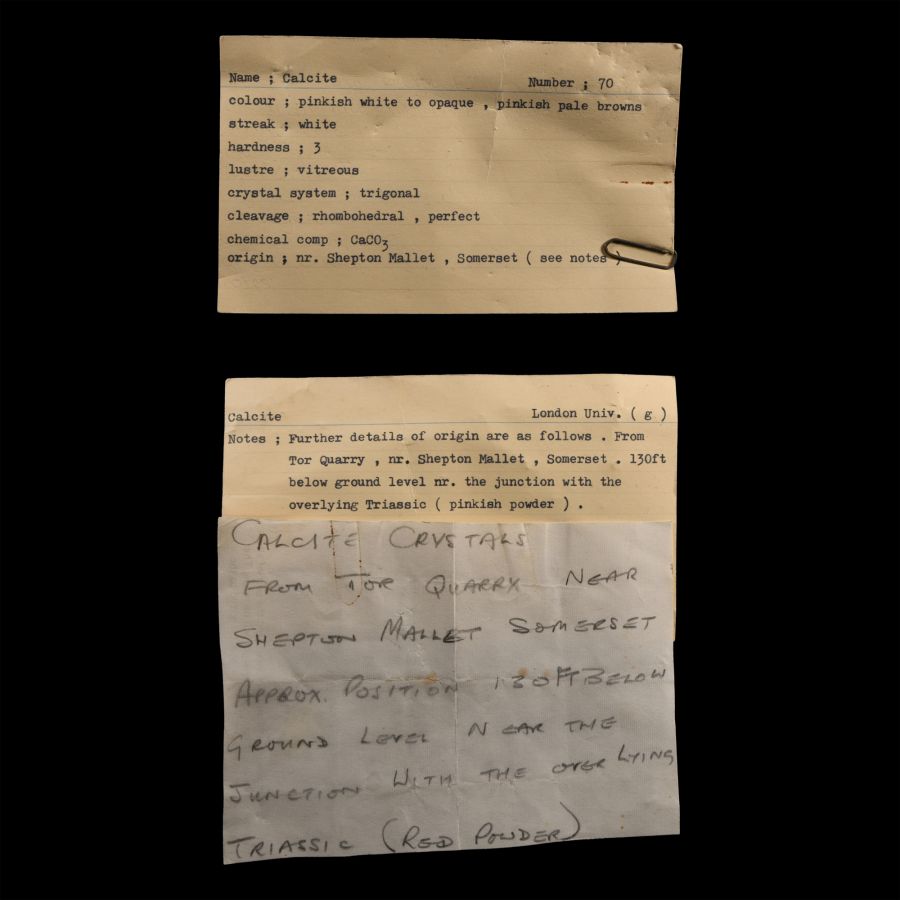 Name ; Calcite Number ; 70
colour ; pinkish white to opaque , pinkish pale browns
streak ; white
hardness ; 3
lustre ; vitreous
crystal system ; trigonal
cleavage ; rhombohedral , perfect
chemical comp ; CaCO3
origin ; nr. Shepton Mallet , Somerset ( see notes )
Calcite London Univ. ( g )
Notes ; Further details of origin are as follows . From
Tor Quarry , nr. Shepton Mallet , Somerset . 130ft
below ground level nr. the junction with the
overlying Triassic ( pinkish powder ) .
CALCITE CRYSTALS
FROM TOR QUARRY NEAR
SHEPTON MALLET SOMERSET
APPROX. POSITION 130FT BELOW
GROUND LEVEL NEAR THE
JUNCTION WITH THE OVER LYING
TRIASSIC (RED POWDER)